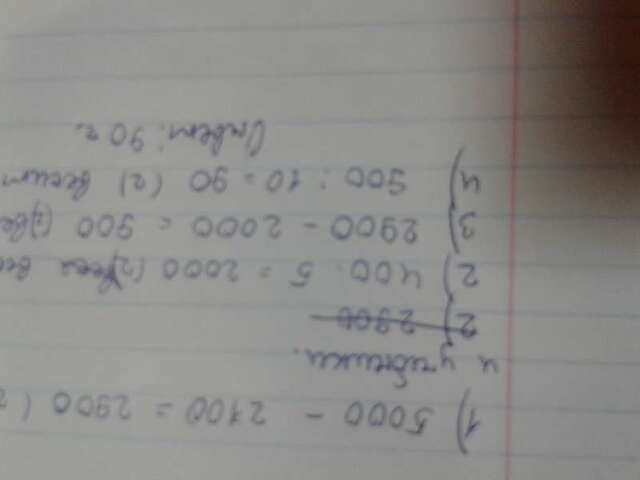 1) 5000 - 2100 = 2900 (г
и учебники.
2) 2900
2) 400 · 5 = 2000 (г) весят
3) 2900 - 2000 = 900 (г)
4) 900 : 10 = 90 (г) весит
Ответ: 90 г.